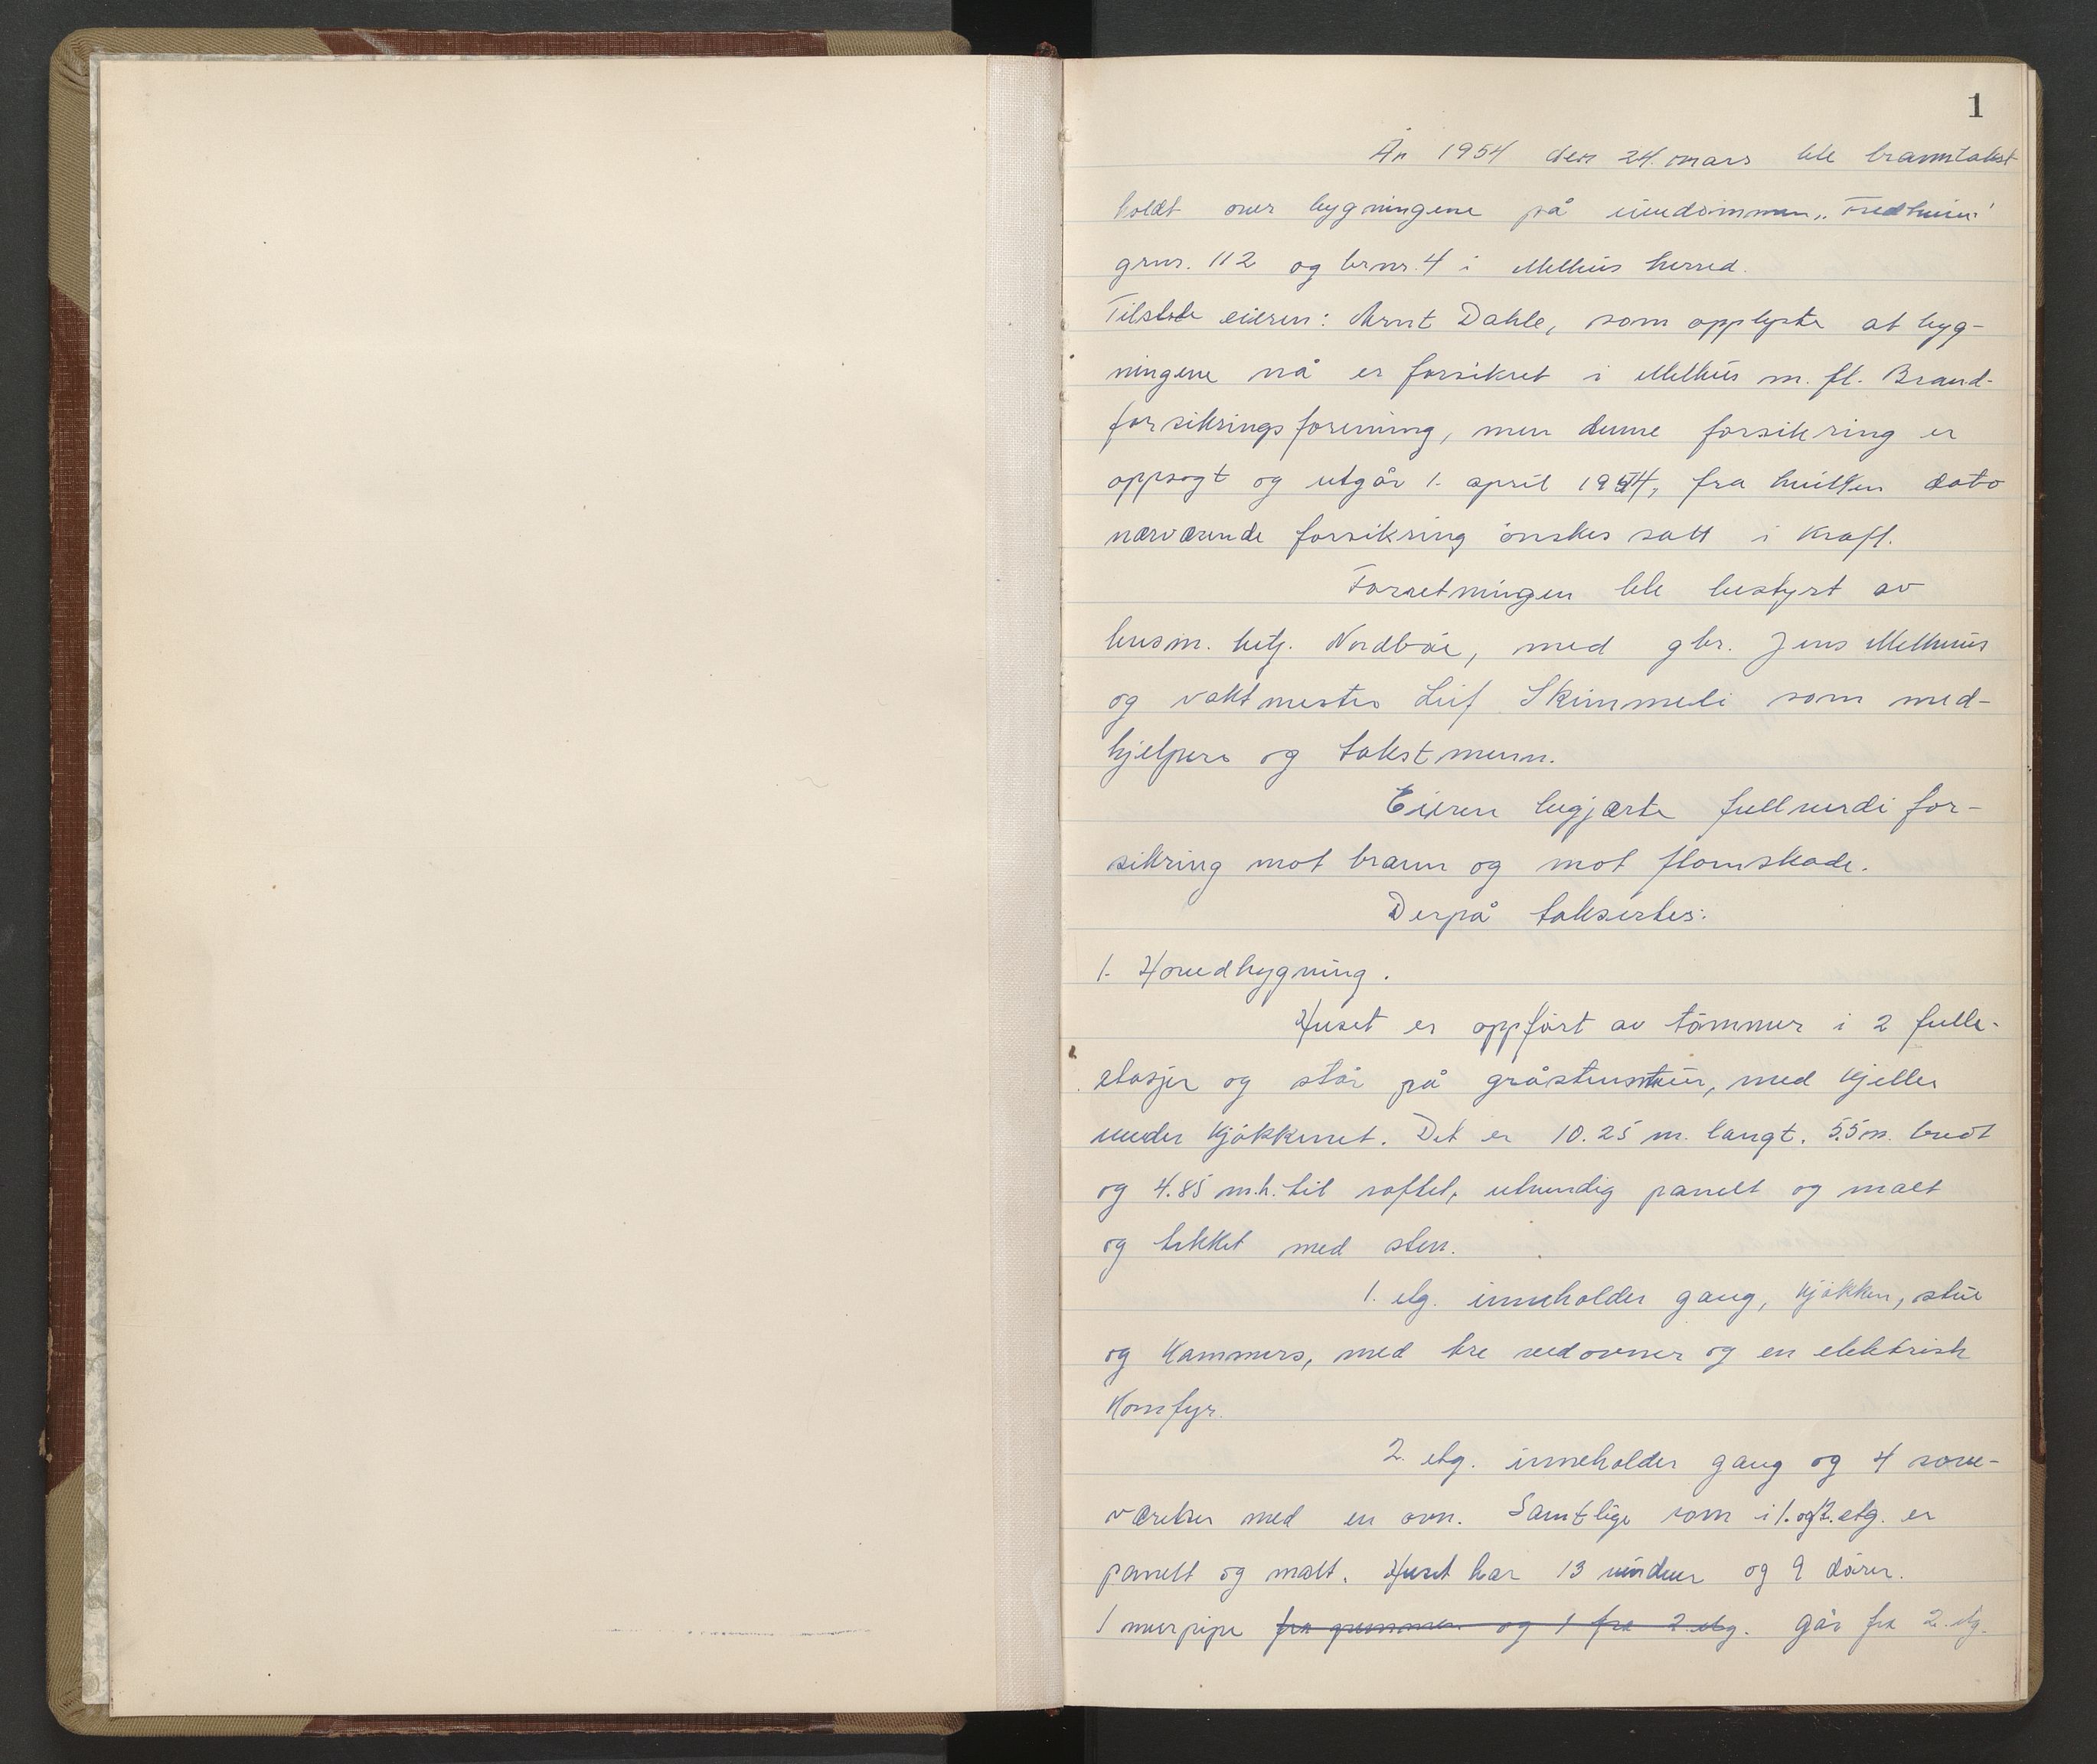 1
År 1954 den 24. mars ble branntakst
holdt over bygningene på eiendommen „Fredheim"
grnr. 112 og brnr. 4 i Melhus herred.
Tilstede eieren: Arnt Dahle, som opplyste at byg-
ningene nå er forsikret i Melhus m. fl. Brand-
forsikringsforening, men denne forsikring er
oppsagt og utgår 1. april 1954, fra hvilken dato
nærværende forsikring ønskes satt i kraft.
Forretningen ble bestyrt av
lensm. betj. Nordbøe, med gbr. Jens Melhuus
og vaktmester Leif Skimmeli som med-
hjelpere og takstmenn.
Eieren begjærte fullverdi for-
sikring mot brann og mot flomskade.
Derpå taksertes:
1. Hovedbygning.
Huset er oppført av tømmer i 2 fulle
etasjer og står på gråstensmur, med kjeller
under kjøkkenet. Det er 10.25 m. langt. 5.5 m. bredt
og 4.85 m.h. til raftet, utvendig panelt og malt
og tekket med sten.
1. etg. inneholder gang, kjøkken, stue
og kammers, med tre vedovner og en elektrisk
komfyr.
2. etg. inneholder gang og 4 sove-
værelser med en ovn. Samtlige rom i 1. og 2. etg. er
panelt og malt. Huset har 13 vinduer og 9 dører.
1 murpipe fra grunnmur og 1 fra 2. etg. går fra 2. etg.